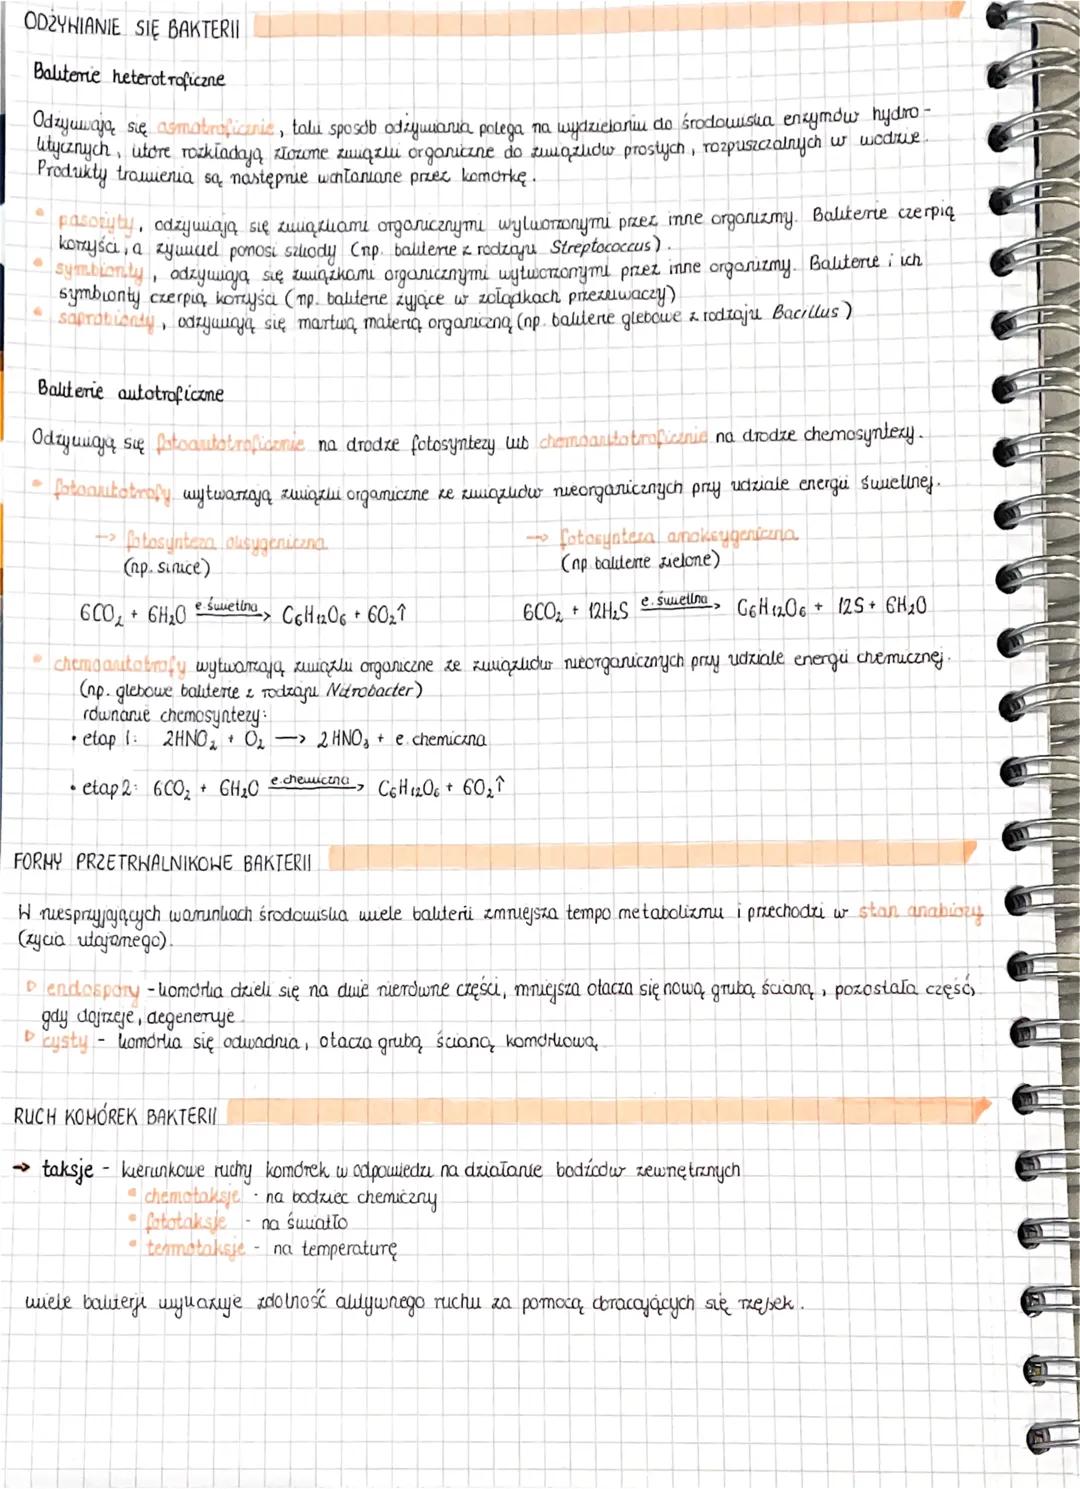 ODŻYWIANIE SIĘ BAKTERII
Bakterie heterotroficzne
Odżywiają się osmotroficznie, taki sposób odżywiania polega na wydzielaniu do środowiska enzymów hydro-
litycznych, które rozkładają złożone związki organiczne do związków prostych, rozpuszczalnych w wodzie.
Produkty trawienia są następnie wchłaniane przez komórkę.
• pasożyty, odżywiają się związkami organicznymi wytworzonymi przez inne organizmy. Bakterie czerpią
korzyści, a żywiciel ponosi szkody (np. bakterie z rodzaju Streptococcus).
• symbionty, odżywiają się związkami organicznymi wytworzonymi przez inne organizmy. Bakterie i ich
symbionty czerpią korzyści (np. bakterie żyjące w żołądkach przeżuwaczy)
• saprobionty, odżywiają się martwą materią organiczną (np. bakterie glebowe z rodzaju Bacillus)
Bakterie autotroficzne
Odżywiają się fotoautotroficznie na drodze fotosyntezy lub chemoautotroficznie na drodze chemosyntezy.
• fotoautotrofy wytwarzają związki organiczne ze związków nieorganicznych przy udziale energii świetlnej.
→ fotosynteza oksygeniczna → fotosynteza anoksygeniczna
(np. sinice) (np bakterie zielone)
6CO₂ + 6H₂O e świetlna→ C₆H₁₂O₆ + 6O₂↑ 6CO₂ + 12H₂S e. świetlna→ C₆H₁₂O₆ + 12S + 6H₂O
• chemoautotrofy wytwarzają związki organiczne ze związków nieorganicznych przy udziale energii chemicznej.
(np. glebowe bakterie z rodzaju Nitrobacter)
równanie chemosyntezy:
• etap 1: 2HNO₂ + O₂ → 2HNO₃ + e. chemiczna
• etap 2: 6CO₂ + 6H₂O e.chemiczna→ C₆H₁₂O₆ + 6O₂↑
FORMY PRZETRWALNIKOWE BAKTERII
W niesprzyjających warunkach środowiska wiele bakterii zmniejsza tempo metabolizmu i przechodzi w stan anabiozy
(życia utajonego).
▷ endospory - komórka dzieli się na dwie nierówne części, mniejsza otacza się nową grubą ścianą, pozostała część,
gdy dojrzeje, degeneruje.
▷ cysty - komórka się odwadnia, otacza grubą ścianą komórkową
RUCH KOMÓREK BAKTERII
→ taksje - kierunkowe ruchy komórek w odpowiedzi na działanie bodźców zewnętrznych
• chemotaksje - na bodziec chemiczny
• fototaksje - na światło
• termotaksje - na temperaturę
wiele bakterii wykazuje zdolność aktywnego ruchu za pomocą obracających się rzęsek.